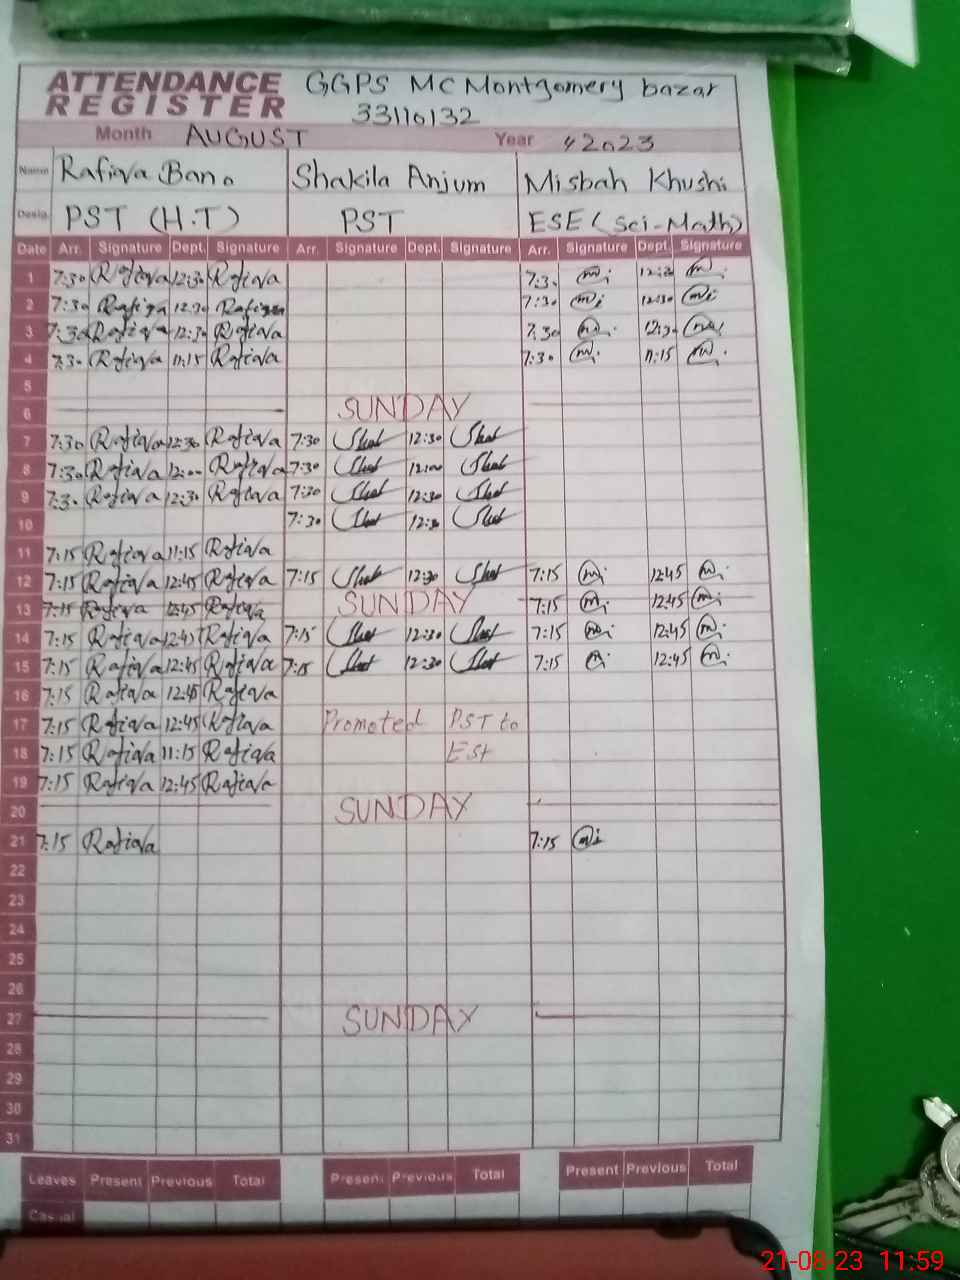 ATTENDANCE REGISTER GGPS MC Montgomery bazar
33110132
Month AUGUST Year 2023
Name Rafiqa Bano Shakila Anjum Misbah Khushi
Desig. PST (H.T) PST ESE (Sci-Math)
Date Arr. Signature Dept. Signature Arr. Signature Dept. Signature Arr. Signature Dept. Signature
1 7:30 Rafiqa 12:30 Rafiqa 7:30 12:30
2 7:30 Rafiqa 12:30 Rafiqa 7:30 12:30
3 7:30 Rafiqa 12:30 Rafiqa 7:30 12:30
4 7:30 Rafiqa 11:15 Rafiqa 7:30 11:15
5
6 SUNDAY
7 7:30 Rafiqa 12:30 Rafiqa 7:30 12:30
8 7:30 Rafiqa 12:00 Rafiqa 7:30 12:00
9 7:30 Rafiqa 12:30 Rafiqa 7:30 12:30
10 7:30 12:30
11 7:15 Rafiqa 11:15 Rafiqa
12 7:15 Rafiqa 12:45 Rafiqa 7:15 12:30 7:15 12:45
13 7:15 Rafiqa 12:45 Rafiqa SUNDAY 7:15 12:45
14 7:15 Rafiqa 12:45 Rafiqa 7:15 12:30 7:15 12:45
15 7:15 Rafiqa 12:45 Rafiqa 7:15 12:30 7:15 12:45
16 7:15 Rafiqa 12:45 Rafiqa
17 7:15 Rafiqa 12:45 Rafiqa Promoted PST to
18 7:15 Rafiqa 11:15 Rafiqa EST
19 7:15 Rafiqa 12:45 Rafiqa
20 SUNDAY
21 7:15 Rafiqa 7:15
22
23
24
25
26
27 SUNDAY
28
29
30
31
Leaves Present Previous Total Present Previous Total Present Previous Total
Casual
21-08-23 11:59